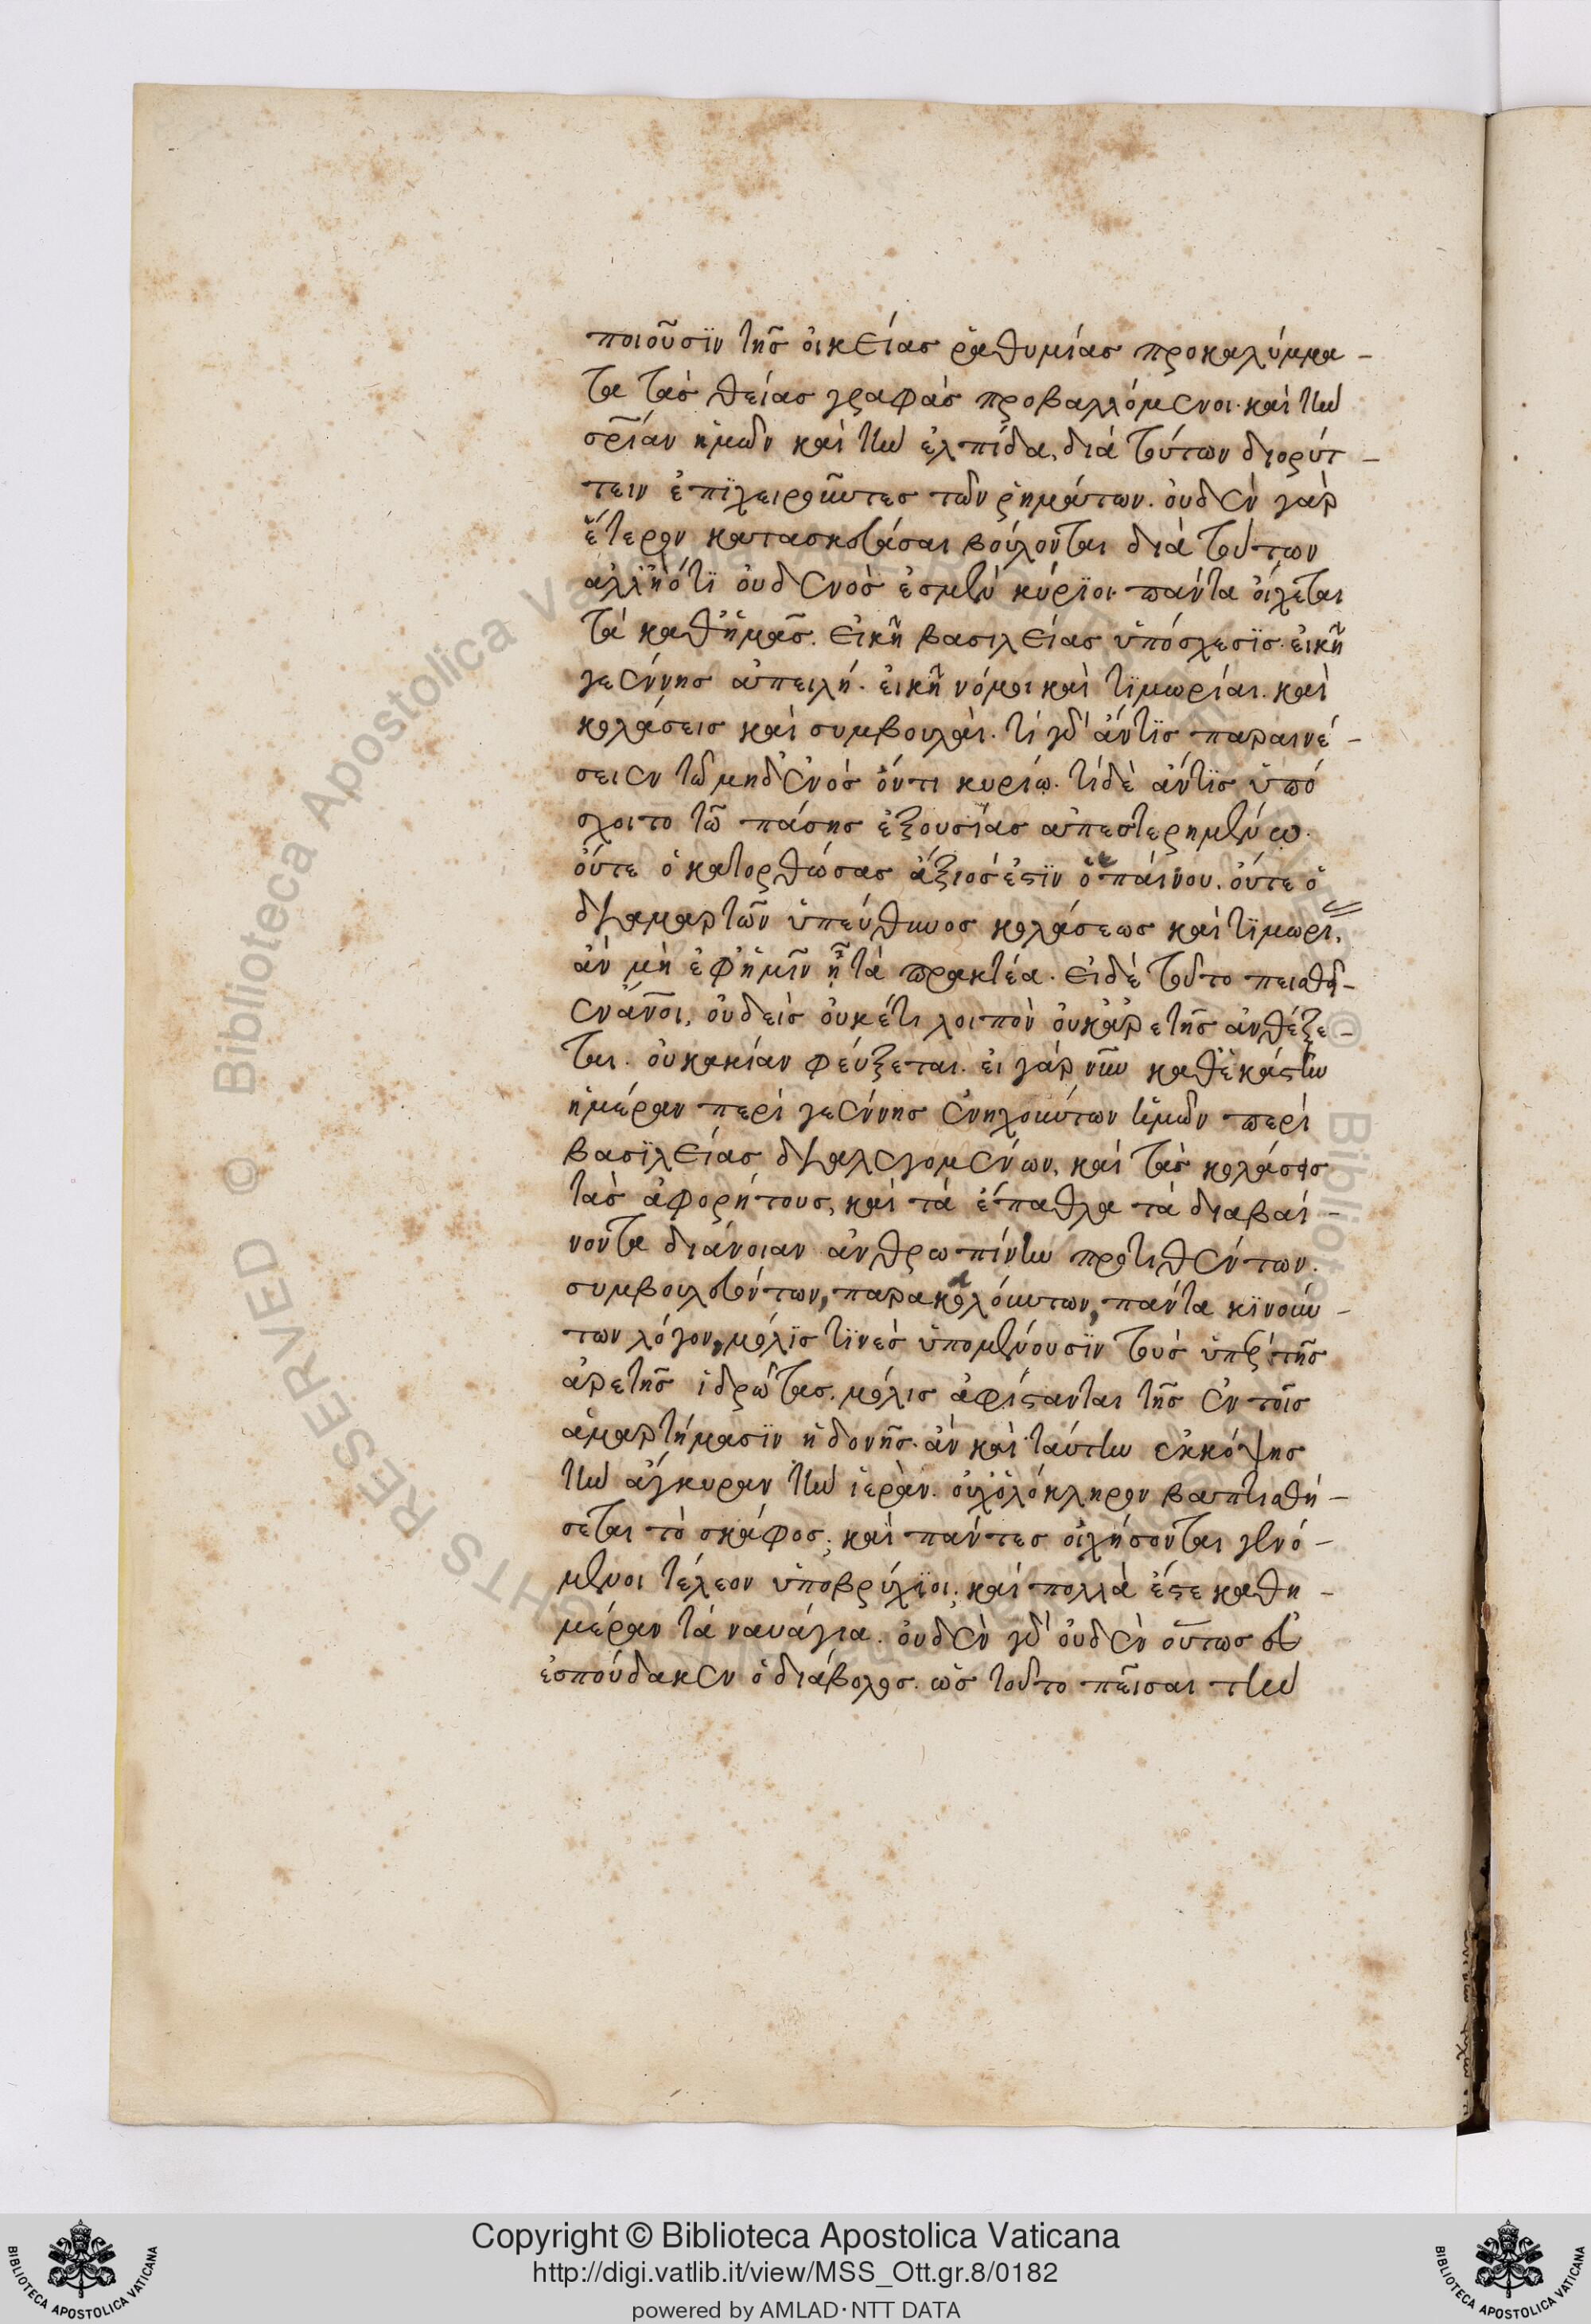 ποιοῦσϊν τῆς οἰκείας ῥαθυμίας προκαλύμμα-
τα τὰς θείας γραφὰς προβαλλόμενοι· καὶ τὴν
σρ̃ίαν ἡμῶν καὶ τὴν ἐλπίδα, διὰ τούτων διορύτ-
τειν ἐπϊχειροῦντες τῶν ῥημάτων. οὐδὲν γὰρ
ἕτερον κατασκευάσαι βούλονται διὰ τούτων
ἀλλ' ἢ ὅτϊ οὐδενὸς ἐσμὲν κύρϊοι· πάντα οἴχεται
τὰ καθ' ἡμᾶς. εἰκῆ βασιλείας ὑπόσχεσϊς· εἰκῆ
γεέννης ἀπειλή· εἰκῆ νόμοι καὶ τϊμωρίαι. καὶ
κολάσεις καὶ συμβουλαί. τί γὰρ ἄν τϊς παραινέ-
σειεν τῷ μηδενὸς ὄντι κυρίῳ· τί δὲ ἄν τϊς ὑπό
σχοιτο τῷ πάσης ἐξουσίας ἀπεστερημένῳ·
οὔτε ὁ κατορθώσας ἄξιός ἐστϊν ἐπαίνου. οὔτε ὁ
διαμαρτὼν ὑπεύθυνος κολάσεως καὶ τϊμωρί,
ἂν μὴ ἐφ' ἡμῖν ᾖ τὰ πρακτέα. εἰ δὲ τοῦτο πεισθεῖ-
εν ἄν̅οι, οὐδεὶς οὐκέτι λοιπὸν οὐκ ἀρετῆς ἀνθέξε-
ται. οὐ κακίαν φεύξεται. εἰ γὰρ νῦν καθ' ἑκάστην
ἡμέραν περὶ γεέννης ἐνηχούντων ἡμῶν περὶ
βασϊλείας διαλεγομένων, καὶ τὰς κολάσεις
τὰς ἀφορήτους, καὶ τὰ ἔπαθλα τὰ διαβαί-
νοντα διάνοιαν ἀνθρωπίνην προτιθέντων.
συμβουλευόντων, παρακαλούντων, πάντα κϊνούν-
των λόγον, μόλϊς τϊνὲς ὑπομένουσϊν τοὺς ὑπὲρ τῆς
ἀρετῆς ἱδρῶτας. μόλις ἀφίστανται τῆς ἐν τοῖς
ἁμαρτήμασϊν ἡδονῆς· ἂν καὶ ταύτην ἐκκόψης
τὴν ἄγκυραν τὴν ἱερὰν. οὐχ ὁλόκληρον βαπτισθή-
σεται τὸ σκάφος; καὶ πάντες οἰχήσονται γενό-
μενοι τέλεον ὑποβρύχϊοι; καὶ πολλὰ ἔσται καθη-
μέραν τὰ ναυάγια. οὐδὲν γὰρ οὐδὲν οὕτως εὖ
ἐσπούδακεν ὁ διάβολος. ὡς τοῦτο πεῖσαι τὴν
Copyright © Biblioteca Apostolica Vaticana
http://digi.vatlib.it/view/MSS_Ott.gr.8/0182
powered by AMLAD·NTT DATA